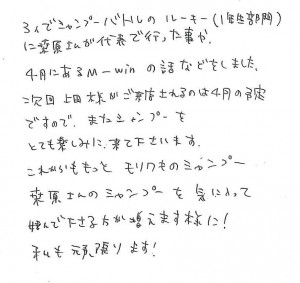 3人でシャンプーバトルのルーキー(1年生部門)
に桑原さんが代表で行った事や、
4月にあるM-winの話などをしました。
次回上田様がご来店されるのは4月の予定
ですので、またシャンプーを
とても楽しみに、来て下さいます。
これからももっと モリワキのシャンプー
桑原さんのシャンプーを気に入って
喜んで下さる方が増えます様に!
私も頑張ります!